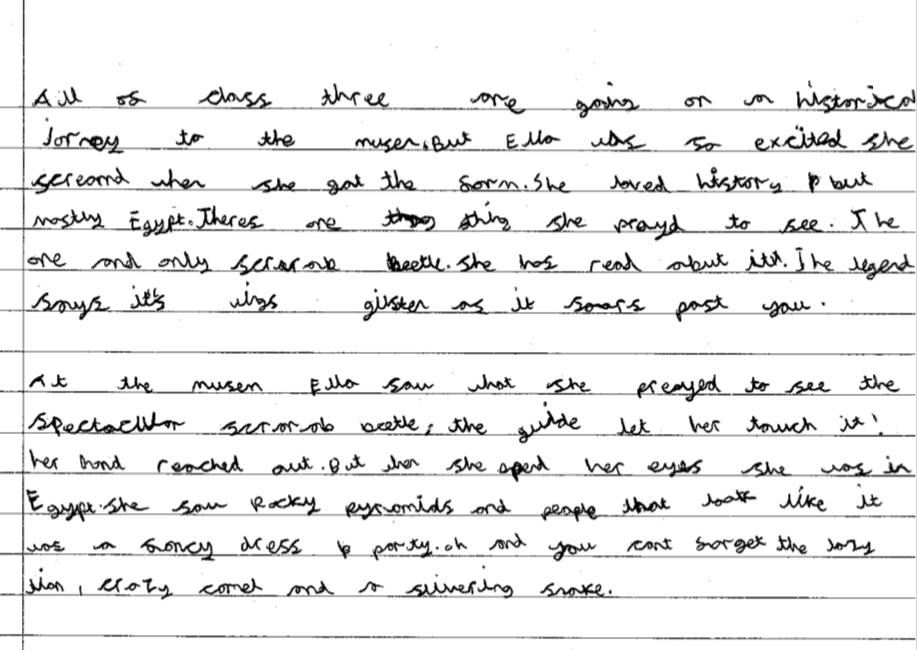 All of class three are going on a historical
jorney to the musem, But Ella was so excited she
screamd when she got the form. She loved history but
mostly Egypt. Theres one thing she prayd to see. The
one and only scrarab beetle. She has read about it. The legend
says it's wigs glister as it soars past you.
At the musem Ella saw what she preayed to see the
spectacllar scrarab beetle, the guide let her touch it!
her hand reached out. But when she opend her eyes she was in
Egypt. She saw Rocky pyramids and people that look like it
was a fancy dress party. oh and you cant forget the lazy
lion, crazy camel and a slivering snake.